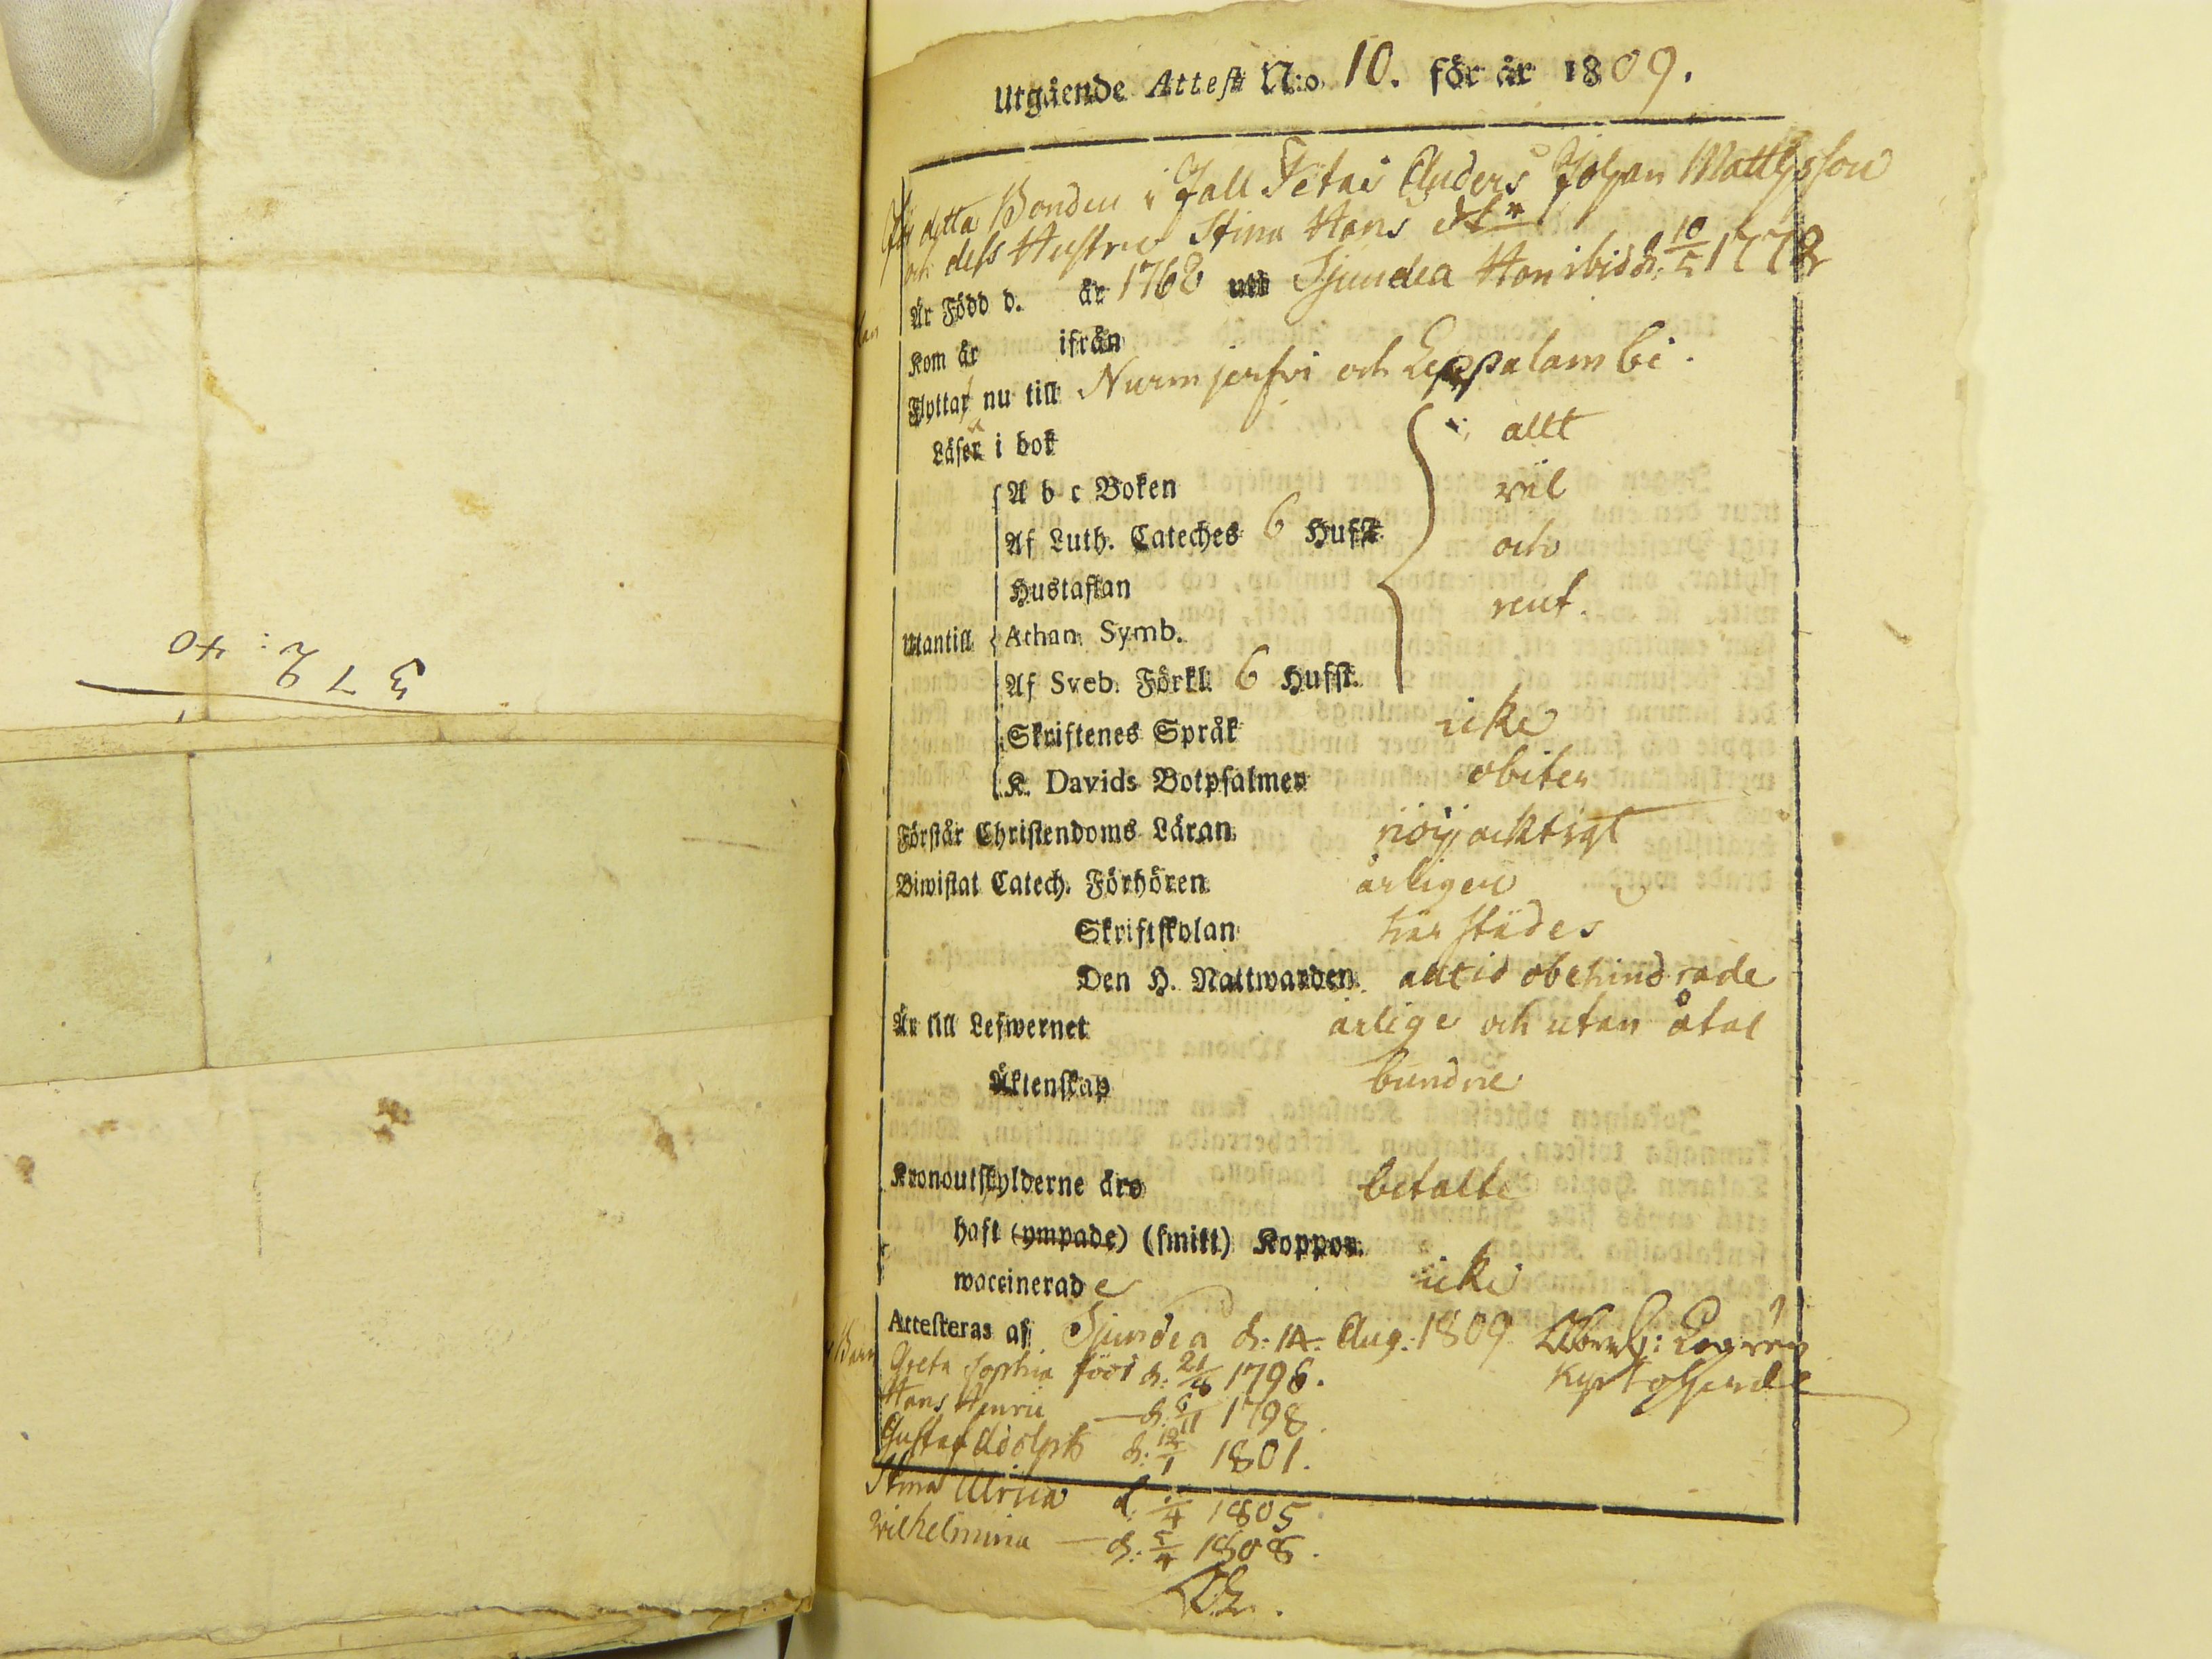 372:40
Utgående Attest N:o 10. för år 1809.
För detta Bonden i Fall Petar Anders Johan Mattsson
och dess Hustru Stina Hans dr
Är Född d. år 1768 uti Sjundea Hon ibid d. 10/5 1772
Kom år ifrån
Flyttar nu till Nurmjerfvi och Leppalambi.
Läser i bok allt
A b c Boken väl
Af Luth. Cateches 6 Hufst. och
Hustaflan rent.
Utantill Athan. Symb.
Af Sveb. Förkl. 6 Hufst.
Skriftenes Språk icke
K. Davids Botpsalmer obiter
Förstår Christendoms Läran nöijacktigt
Biwistat Catech. Förhören årligen
Skriftskolan här städes
Den H. Nattwarden altid obehindrade
Är till Lefwernet ärlige och utan åtal
Äktenskap bundne
Kronoutskylderne äro betalte
haft (ympade) (smitt) Koppor.
waccinerade icke
Attesteras af Sjundea d: 14. Aug: 1809
Barn Greta Sophia född d: 21/8 1796.
Hans Henric d: 6/11 1798
Gustaf Adolph d: 12/1 1801.
Stina Ulrica d. /4 1805
Wilhelmina d: 5/4 1808.